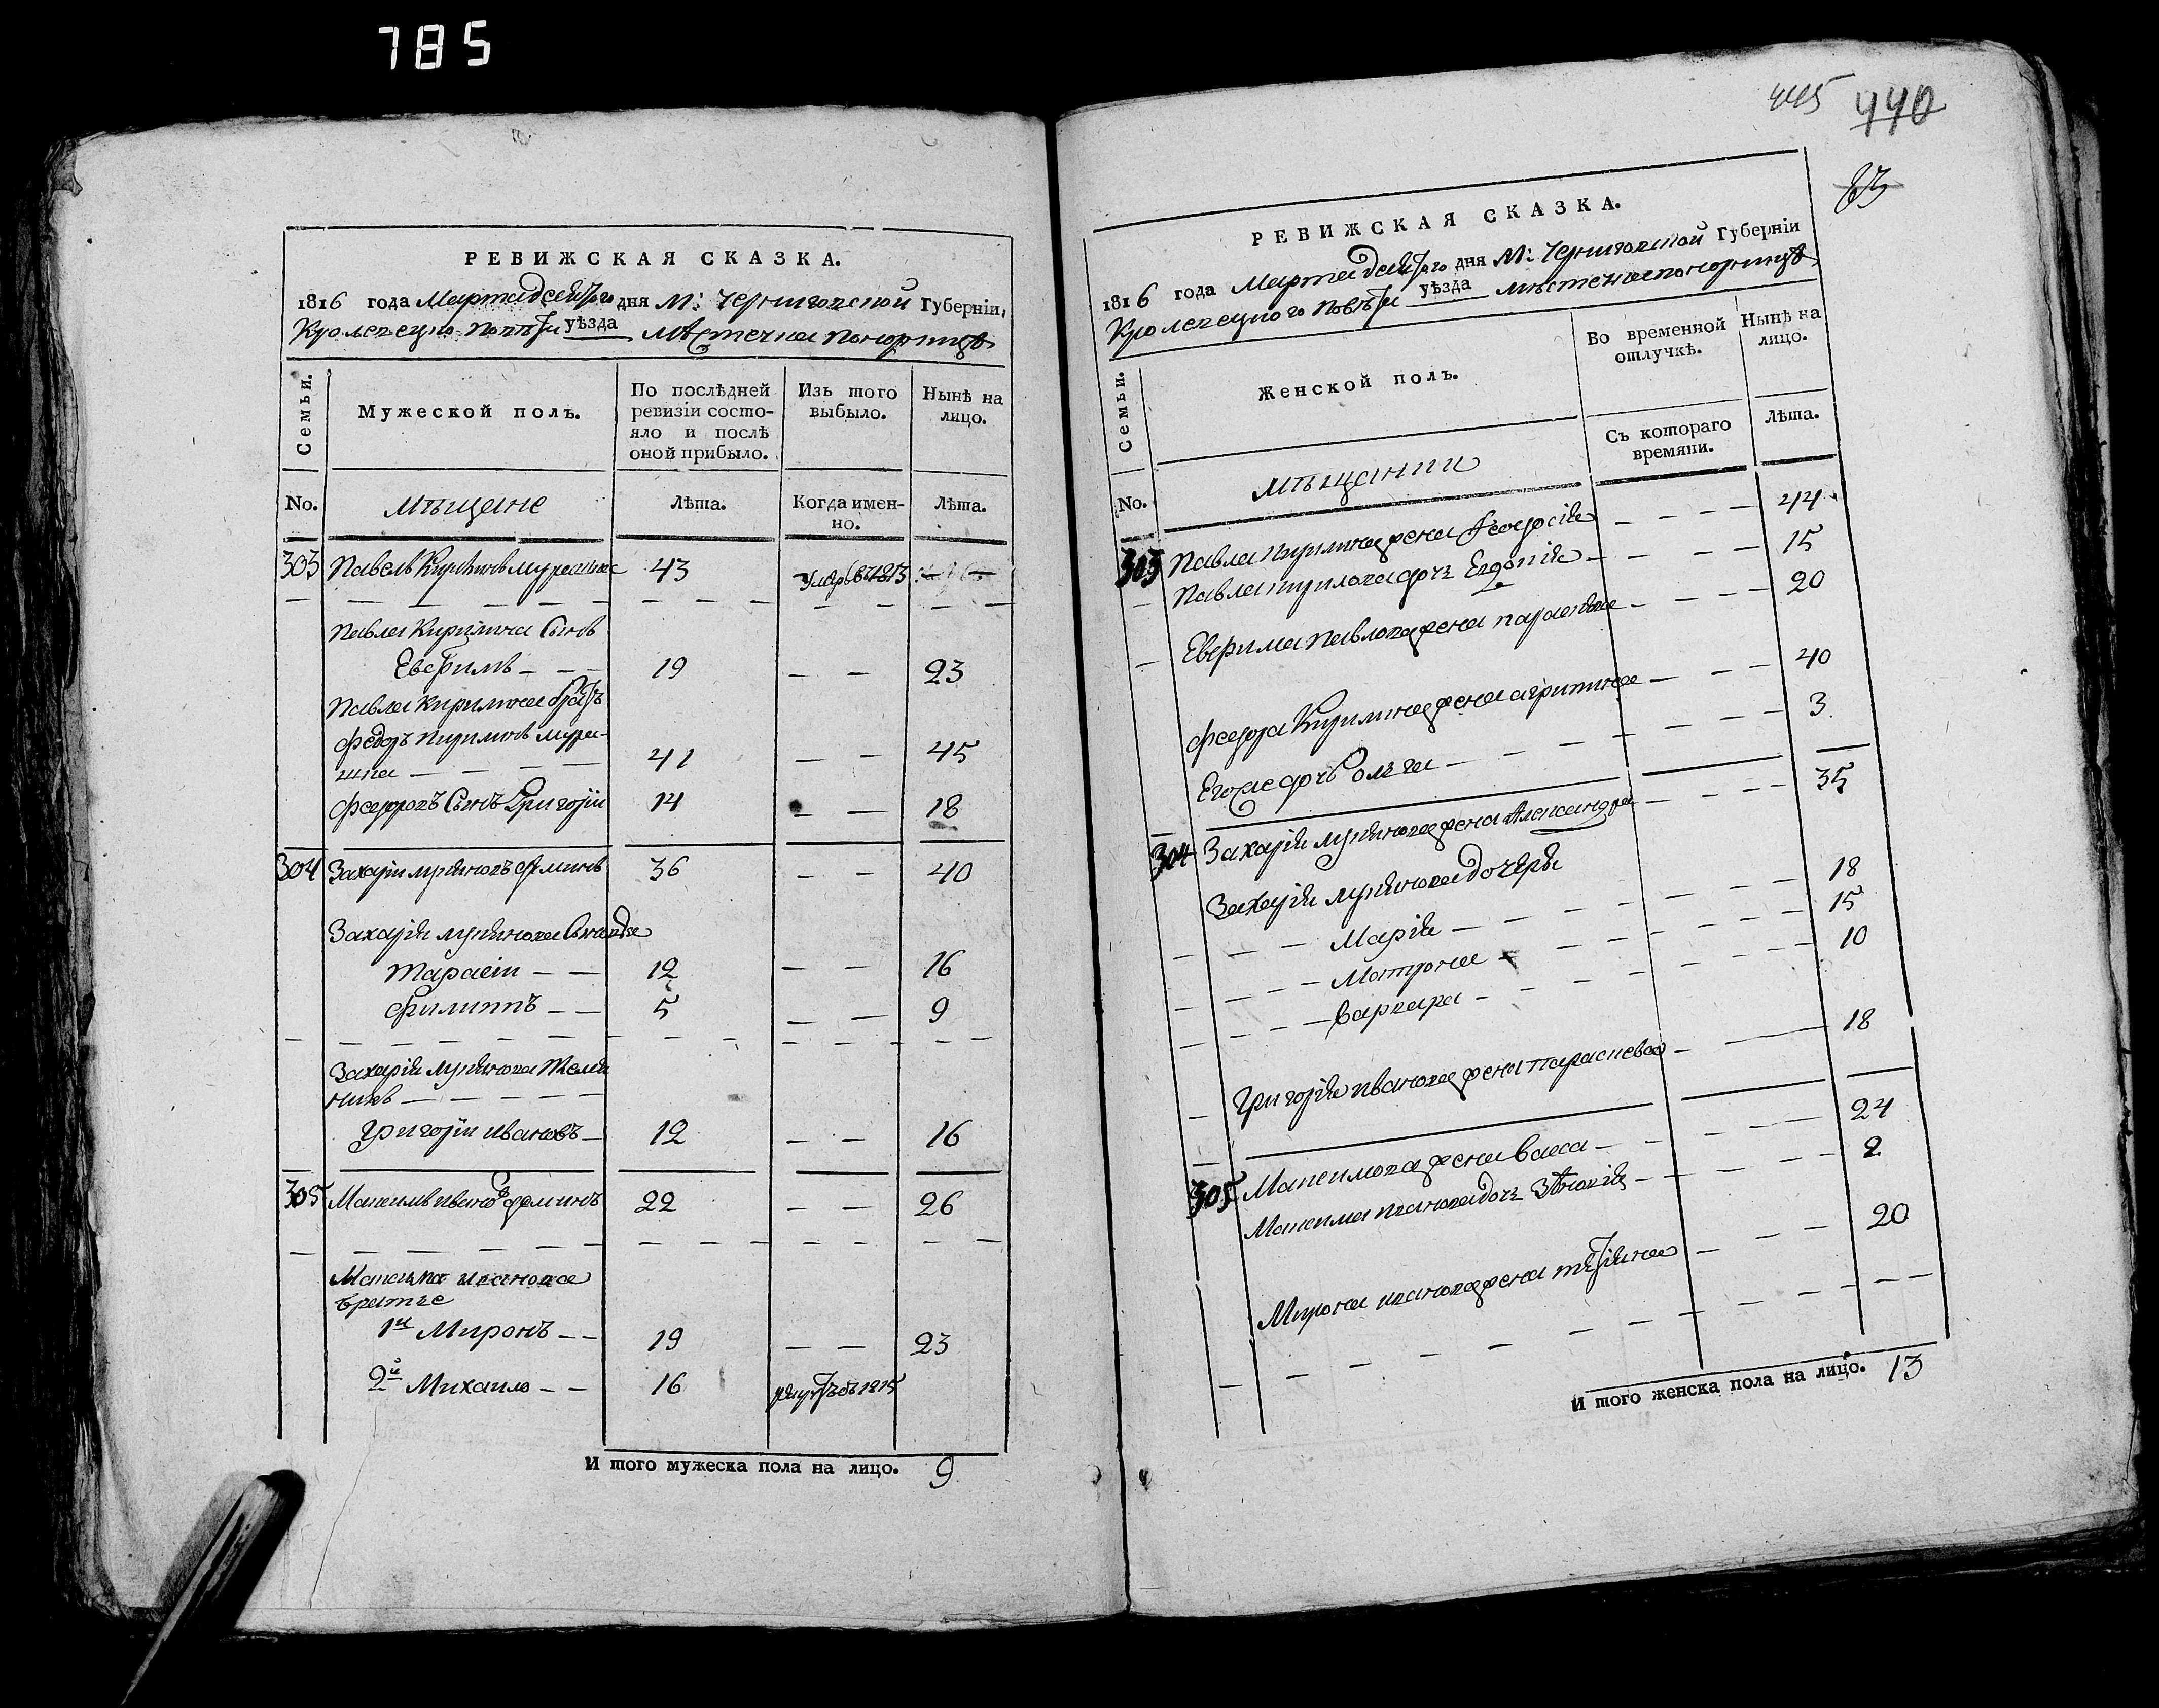 785
РЕВИЖСКАЯ СКАЗКА.
1816 года Марта девятого дня М: Черниговской Губерніи,
Кролевецко повѣту уѣзда мѣстечка Понорницѣ
Семьи.
Мужеской полъ.
По послѣдней ревизіи состо-
яло и послѣ
оной прибыло.
Изъ того
выбыло.
Нынѣ на
лицо.
No.
мѣщане
Лѣта.
Когда имен-
но.
Лѣта.
303 Павелъ Кириловъ 43 умре въ 1813
Павла Кирилова Сынъ
Евфимъ 19 23
Павла Кирилова братъ
Федоръ Кириловъ
41 45
Федоровъ Сынъ Григорій 14 18
304 Захарій 36 40
Захарія
Тарасій 12 16
Филиппъ 5 9
Захарія племян
никъ
Григорій Ивановъ 12 16
305 Максимъ Ивановъ 22 26
Максима Иванова
братья
1й Миронъ 19 23
2й Михаило 16 1815
И того мужеска пола на лицо. 9
445 440
83
РЕВИЖСКАЯ СКАЗКА.
1816 года Марта девятого дня М: Черниговской Губерніи
Кролевецкого Повѣту уѣзда мѣстечка Понорницѣ
Семьи.
Женской полъ.
Во временной
отлучкѣ.
Нынѣ на
лицо.
No.
мѣщанки
Съ котораго
времяни.
Лѣта.
303 Павла Кирилова жена Феодосія 44
Павла Кирилова дочь Евдокія 15
Евфима Павлова жена 20
Федора Кирилова жена Агрипина 40
Его же дочь Ольга 3
304 Захарія жена Александра 35
Захарія дочери
Марія 18
Матрона 15
Варвара 10
Григорія Иванова жена Параскева 18
305 Максимова жена Васса 24
Максима Иванова дочь 2
Мирона Иванова жена Татіяна 20
И того женска пола на лицо. 13